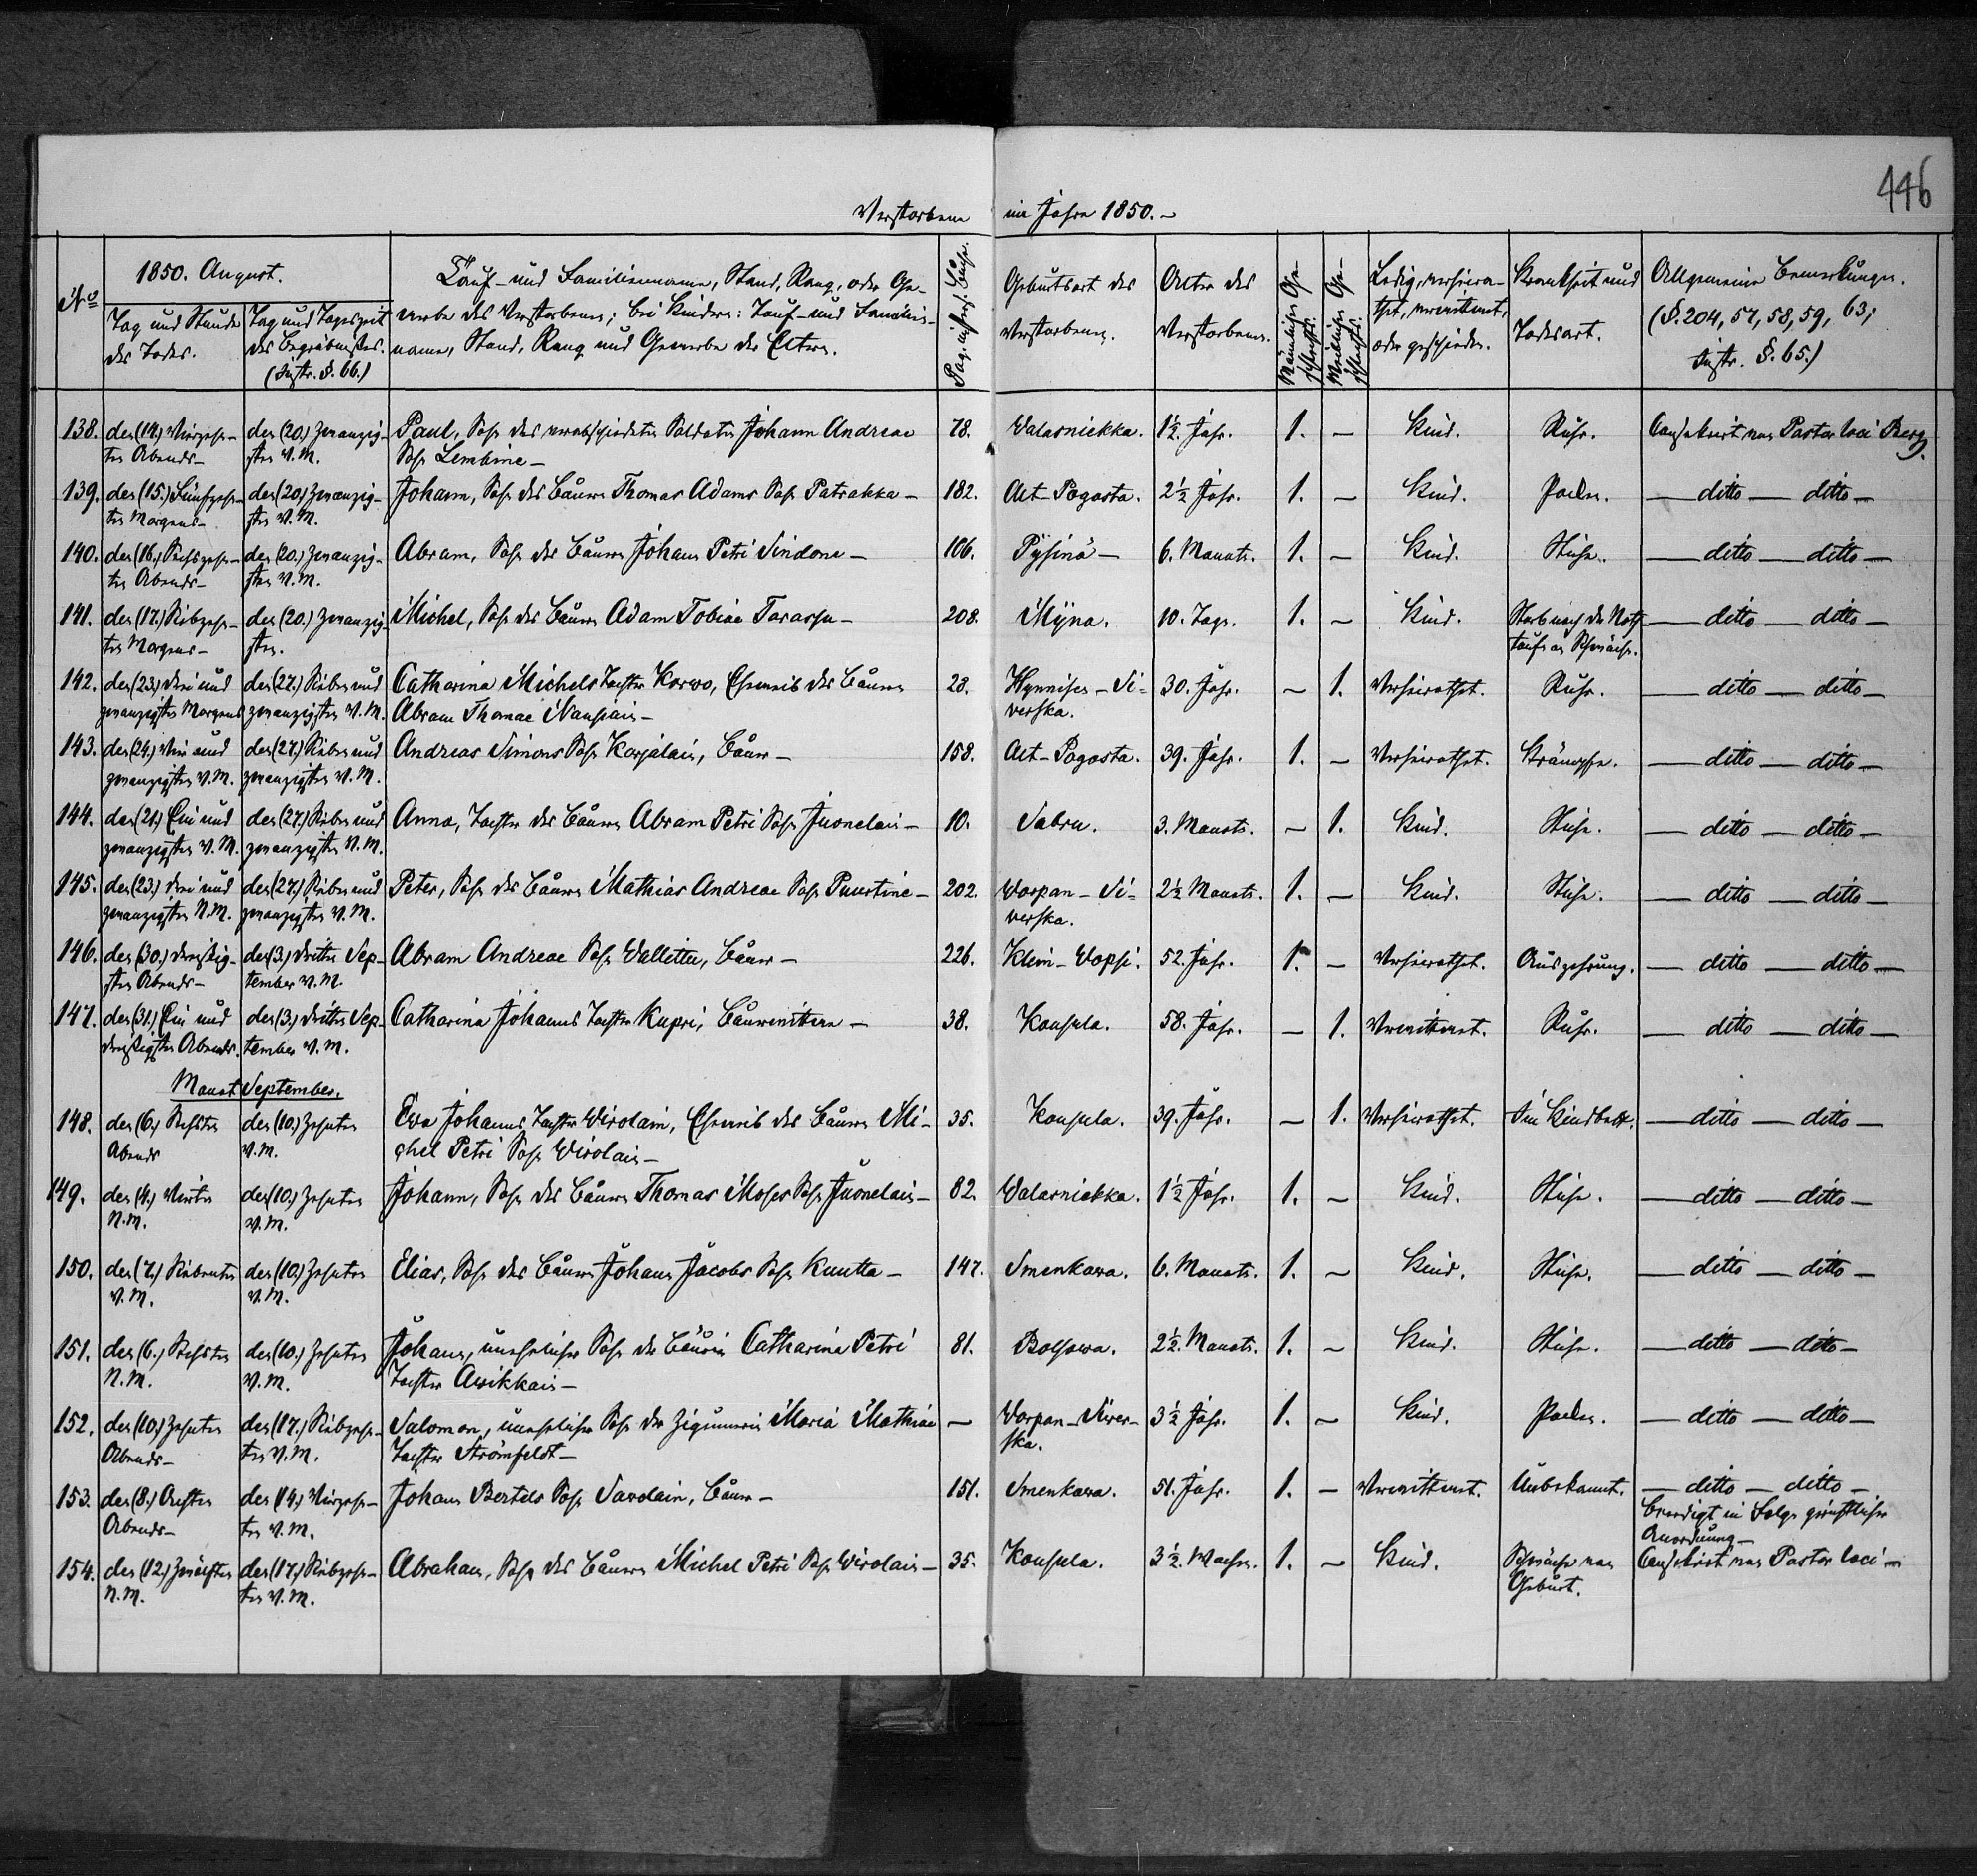 446
Verstorbene im Jahre 1850.
No
1850. August.
Tag und Stunde des Todes.
Tag und Tageszeit des Begräbnisses. (Instr. §. 66.)
Tauf- und Familienname, Stand, Rang, oder Ge-
werbe des Verstorbenen; bei Kindern: Tauf- und Familien-
name, Stand, Rang und Gewerbe der Eltern.
Geburtsort des Verstorbenen.
Alter des Verstorbenen.
Männlichen Ge-
schlechts.
Weiblichen Ge-
schlechts.
Ledig, verheira-
thet, verwittwet,
oder geschieden.
Krankheit und Todesart.
Allgemeine Bemerkungen.
(§. 204, 57, 58, 59, 63;
Instr. §. 65.)
138. den (14.) Vierzehn- den (20.) Zwanzig- Paul, Sohn des verabschiedeten Soldaten Johann Andreae 78. Walasniekka. 1½ Jahr. 1. — Kind. Ruhr. Consekrirt von Pastor loci Berg.
ten Abends- sten V.M. Sohn Lembine-
139. den (15.) Fünfzehn- den (20.) Zwanzig- Johann, Sohn des Bauern Thomas Adams Sohn Patrakka- 182. Alt-Pogosta. 2½ Jahr. 1. — Kind. Pocken. — ditto — ditto —
ten Morgens- sten V.M.
140. den (16.) Sechszehn- den (20.) Zwanzig- Abram, Sohn des Bauern Johann Petri Sindone- 106. Pysinä- 6. Monate. 1. — Kind. — ditto — ditto —
ten Abends- sten V.M.
141. den (17.) Siebzehn- den (20.) Zwanzig- Michel, Sohn des Bauern Adam Tobiae Tarassu- 208. Myna. 10. Tage. 1. — Kind. Starb nach der Noth- — ditto — ditto —
ten Morgens- sten. taufe an Schwäche.
142. den (23.) Drei und den (27.) Sieben und Catharina Michels Tochter Korwo, Eheweib des Bauern 28. Hynnisen-Si- 30. Jahr. — 1. Verheirathet. Ruhr. — ditto — ditto —
zwanzigsten Morgens zwanzigsten V.M. Abram Thomae Naupiain- verska.
143. den (24.) Vier und den (27.) Sieben und Andreas Simons Sohn Karjalain, Bauer- 158. Alt-Pogosta. 39. Jahr. 1. — Verheirathet. Krämpfe. — ditto — ditto —
zwanzigsten V.M. zwanzigsten V.M.
144. den (21.) Ein und den (27.) Sieben und Anna, Tochter des Bauern Abram Petri Sohn Juonelain- 10. Sabru. 3. Monate. — 1. Kind. — ditto — ditto —
zwanzigsten V.M. zwanzigsten V.M.
145. den (23.) Drei und den (27.) Sieben und Peter, Sohn des Bauern Mathias Andreae Sohn Puurtine- 202. Worpan-Si- 2½ Monate. 1. — Kind. — ditto — ditto —
zwanzigsten N.M. zwanzigsten V.M. verska.
146. den (30.) Dreißig- den (3.) Dritten Sep- Abram Andreae Sohn Wallittu, Bauer- 226. Klein-Wopsi. 52. Jahr. 1. — Verheirathet. Auszehrung. — ditto — ditto —
sten Abends- tember V.M.
147. den (31.) Ein und den (3.) Dritten Sep- Catharina Johanns Tochter Kupri, Bauerwittwe- 38. Koupula. 58. Jahr. — 1. Verwittwet. Ruhr. — ditto — ditto —
dreißigsten Abends. tember V.M.
Monat September.
148. den (6.) Sechsten den (10.) Zehnten Eva Johanns Tochter Wirolain, Eheweib des Bauern Mi- 35. Koupula. 39. Jahr. — 1. Verheirathet. Im Kindbett. — ditto — ditto —
Abends V.M. chel Petri Sohn Wirolain-
149. den (4.) Vierten den (10.) Zehnten Johann, Sohn des Bauern Thomas Moses Sohn Juonelain- 82. Walasniekka. 1½ Jahr. 1. — Kind. — ditto — ditto —
N.M. V.M.
150. den (7.) Siebenten den (10.) Zehnten Elias, Sohn des Bauern Johann Jacobs Sohn Kuutta- 147. Smenkowa. 6. Monate. 1. — Kind. — ditto — ditto —
V.M. V.M.
151. den (6.) Sechsten den (10.) Zehnten Johann, unehelicher Sohn der Bäurin Catharina Petri 81. Bolschowa. 2½. Monate. 1. — Kind. — ditto — ditto —
N.M. V.M. Tochter Awikkain-
152. den (10.) Zehnten den (17.) Siebzehn- Salomon, unehelicher Sohn der Zigeunerin Maria Mathiae — Worpan-Siver- 3½ Jahr. 1. — Kind. Pocken. — ditto — ditto —
Abends- ten V.M. Tochter Strömfeldt- ska.
153. den (8.) Achten den (14.) Vierzehn- Johann Bertels Sohn Savolain, Bauer- 151. Smenkowa. 51. Jahr. 1. — Verwittwet. Unbekannt. — ditto — ditto —
Abends- ten V.M. Beerdigt in Folge gerichtlicher
Anordnung-
154. den (12.) Zwölften den (17.) Siebzehn- Abraham, Sohn des Bauern Michel Petri Sohn Wirolain- 35. Koupula. 3½. Wochen. 1. — Kind. Schwäche von Consekrirt von Pastor loci-
N.M. ten V.M. Geburt.